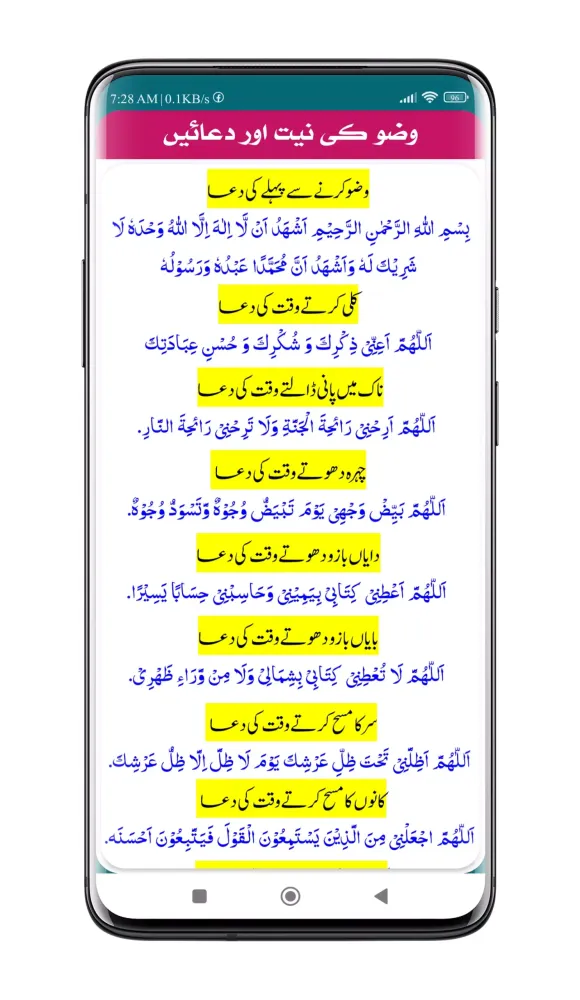 7:28 AM | 0.1KB/s
96
وضو کی نیت اور دعائیں
وضو کرنے سے پہلے کی دعا
بِسْمِ اللّٰهِ الرَّحْمٰنِ الرَّحِيْمِ اَشْهَدُ اَنْ لَّا اِلٰهَ اِلَّا اللّٰهُ وَحْدَهٗ لَا
شَرِيْكَ لَهٗ وَاَشْهَدُ اَنَّ مُحَمَّدًا عَبْدُهٗ وَرَسُوْلُهٗ
کلی کرتے وقت کی دعا
اَللّٰهُمَّ اَعِنِّيْ ذِكْرِكَ وَ شُكْرِكَ وَ حُسْنِ عِبَادَتِكَ
ناک میں پانی ڈالتے وقت کی دعا
اَللّٰهُمَّ اَرِحْنِيْ رَائِحَةَ الْجَنَّةِ وَلَا تَرِحْنِيْ رَائِحَةَ النَّارِ.
چہرہ دھوتے وقت کی دعا
اَللّٰهُمَّ بَيِّضْ وَجْهِيْ يَوْمَ تَبْيَضُّ وُجُوْهٌ وَّتَسْوَدُّ وُجُوْهٌ.
دایاں بازو دھوتے وقت کی دعا
اَللّٰهُمَّ اَعْطِنِيْ كِتَابِيْ بِيَمِيْنِيْ وَحَاسِبْنِيْ حِسَابًا يَسِيْرًا.
بایاں بازو دھوتے وقت کی دعا
اَللّٰهُمَّ لَا تُعْطِنِيْ كِتَابِيْ بِشِمَالِيْ وَلَا مِنْ وَّرَاءِ ظَهْرِيْ.
سر کا مسح کرتے وقت کی دعا
اَللّٰهُمَّ اَظِلَّنِيْ تَحْتَ ظِلِّ عَرْشِكَ يَوْمَ لَا ظِلَّ اِلَّا ظِلُّ عَرْشِكَ.
کانوں کا مسح کرتے وقت کی دعا
اَللّٰهُمَّ اجْعَلْنِيْ مِنَ الَّذِيْنَ يَسْتَمِعُوْنَ الْقَوْلَ فَيَتَّبِعُوْنَ اَحْسَنَه.